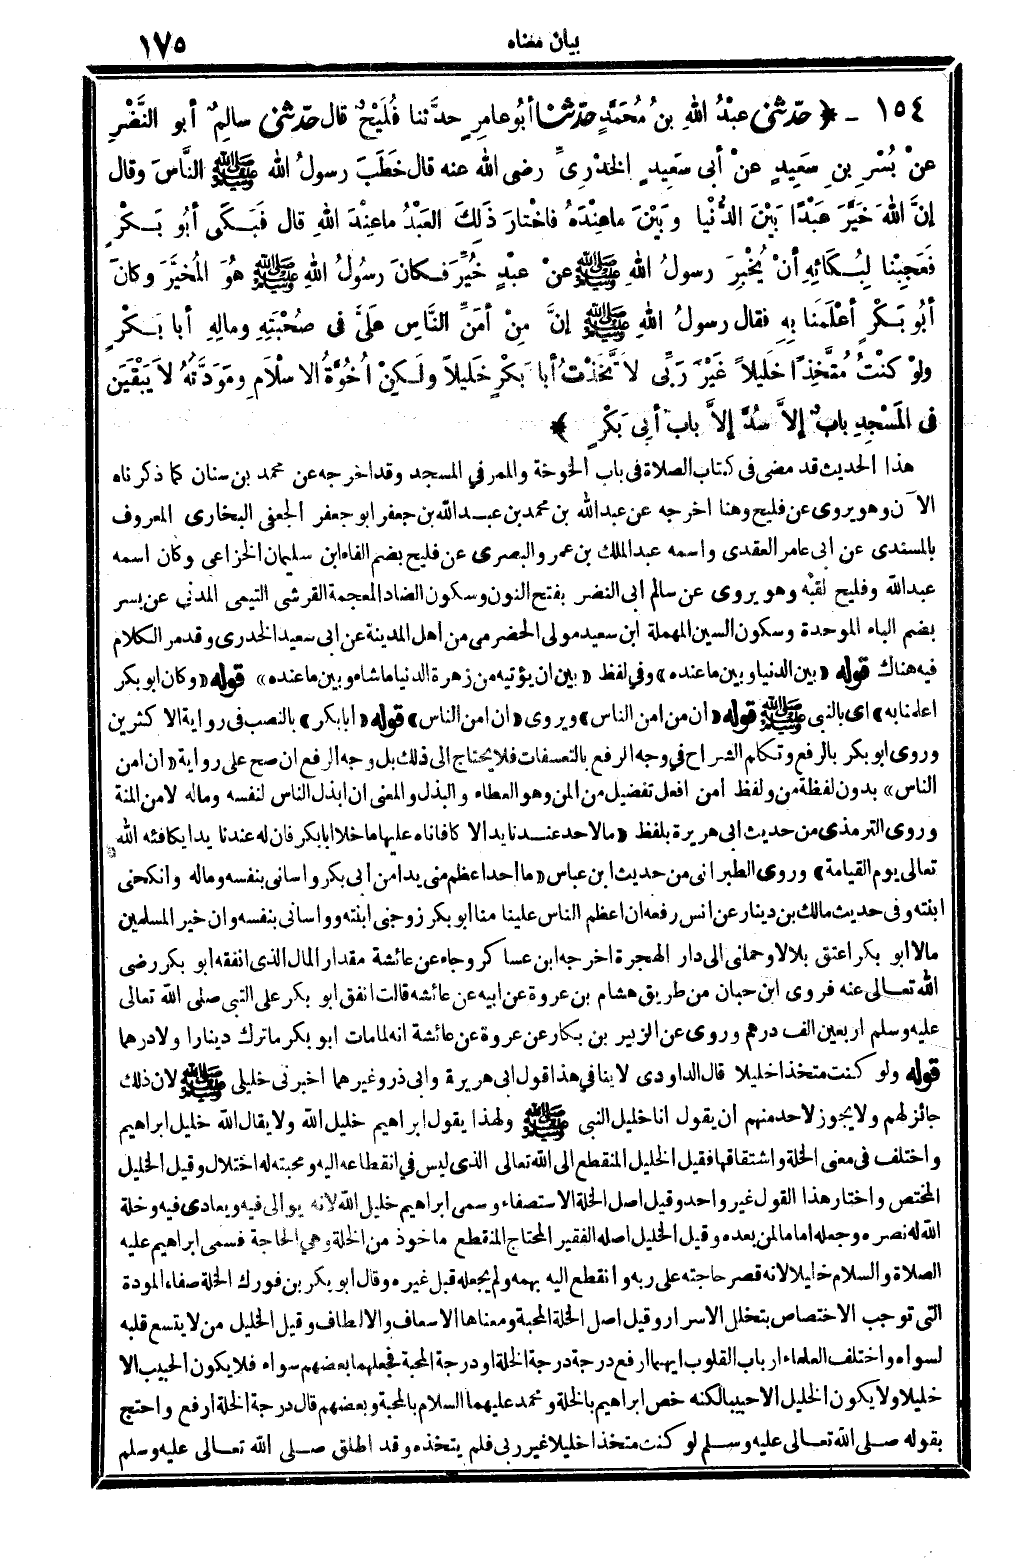 بيان معناه
١٧٥
١٥٤ - ﴿ حدّثني عبْدُ اللهِ بنُ مُحَمَّدٍ حدّثنا أبُو عامِرٍ حدَّثنا فُلَيْحٌ قال حدّثني سالِمٌ أبو النَّضْرِ
عنْ بُسْرِ بنِ سَعِيدٍ عنْ أبي سَعِيدٍ الخدْرِيِّ رضى الله عنه قال خَطَبَ رسولُ الله ﷺ النَّاسَ وقال
إنَّ اللهَ خَيَّرَ عَبْدًا بَيْنَ الدُّنْيا وبَيْنَ ماعِنْدَهُ فاخْتارَ ذَلِكَ العَبْدُ ماعِنْدَ اللهِ قال فَبَكَى أبُو بَكْرٍ
فَعَجِبْنا لِبُكائِهِ أنْ يُخْبِرَ رسولُ اللهِ ﷺ عنْ عبْدٍ خُيِّرَ فكانَ رسُولُ اللهِ ﷺ هُوَ المُخَيَّرَ وكانَ
أبُو بَكْرٍ أعْلَمَنا بِهِ فقال رسولُ اللهِ ﷺ إنَّ مِنْ أمَنِّ النَّاسِ عَلَيَّ فى صُحْبَتِهِ ومالِهِ أبا بَكْرٍ
ولوْ كنْتُ مُتَّخِذًا خَلِيلاً غَيْرَ رَبِّى لاَتَّخَذْتُ أبا بَكْرٍ خَلِيلاً ولَكِنْ أُخُوَّةُ الاسْلاَمِ ومَوَدَّتُهُ لاَ يَبْقَيَنَ
فى المَسْجِدِ بابٌ إلاَّ سُدَّ إلاَّ بابَ أبِى بَكْرٍ ﴾
هذا الحديث قد مضى فى كتاب الصلاة فى باب الخوخة والممر في المسجد وقد اخرجه عن محمد بن سنان كما ذكرناه
الآن وهو يروى عن فليح وهنا اخرجه عن عبدالله بن محمد بن عبدالله بن جعفر ابو جعفر الجعفي البخارى المعروف
بالمسندى عن ابى عامر العقدى واسمه عبدالملك بن عمرو البصرى عن فليح بضم الفاء ابن سليمان الخزاعى وكان اسمه
عبدالله وفليح لقبه وهو يروى عن سالم ابى النضر بفتح النون وسكون الضاد المعجمة القرشى التيمى المدنى عن بسر
بضم الباء الموحدة وسكون السين المهملة ابن سعيد مولى الحضرمى من أهل المدينة عن ابى سعيد الخدرى وقد مر الكلام
فيه هناك قوله «بين الدنيا وبين ما عنده» وفي لفظ «بين ان يؤتيه من زهرة الدنيا ماشاء وبين ما عنده» قوله «وكان ابو بكر
اعلمنابه» اى بالنبى ﷺ قوله «ان من امن الناس» ويروى «ان امن الناس» قوله «ابابكر» بالنصب فى رواية الاكثرين
وروى ابو بكر بالرفع وتكلم الشراح في وجه الرفع بالتعسفات فلا يحتاج الى ذلك بل وجه الرفع ان صح على رواية «ان امن
الناس» بدون لفظة من ولفظ أمن افعل تفضيل من المن وهو العطاء والبذل والمعنى ان ابذل الناس لنفسه وماله لا من المنة
وروى الترمذى من حديث ابى هريرة بلفظ «مالاحد عندنا يد الا كافاناه عليها ما خلا ابابكر فان له عندنا يدا يكافئه الله
تعالى يوم القيامة» وروى الطبرانى من حديث ابن عباس «ما احد اعظم منى يدا من ابى بكر واسانى بنفسه وماله وانكحنى
ابنته وفى حديث مالك بن دينار عن انس رفعه ان اعظم الناس علينا منا ابو بكر زوجنى ابنته وواسانى بنفسه وان خير المسلمين
مالا ابو بكر اعتق بلالا وحملنى الى دار الهجرة اخرجه ابن عساكر وجاء عن عائشة مقدار المال الذى انفقه ابو بكر رضى
الله تعالى عنه فروى ابن حبان من طريق هشام بن عروة عن ابيه عن عائشه قالت انفق ابو بكر على النبى صلى الله تعالى
عليه وسلم اربعين الف درهم وروى عن الزبير بن بكار عن عروة عن عائشة انه لما مات ابو بكر ماترك دينارا ولا درهما
قوله ولو كنت متخذا خليلا قال الداودى لا ينافي هذا قول ابى هريرة وابى ذر وغيرهما اخبرنى خليلى ﷺ لان ذلك
جائز لهم ولا يجوز لاحد منهم أن يقول انا خليل النبى ﷺ ولهذا يقول ابراهيم خليل الله ولا يقال الله خليل ابراهيم
واختلف فى معنى الخلة واشتقاقها فقيل الخليل المنقطع الى الله تعالى الذى ليس في انقطاعه اليه ومحبته له اختلال وقيل الخليل
المختص واختار هذا القول غير واحد وقيل اصل الخلة الاستصفاء وسمى ابراهيم خليل الله لانه يوالى فيه ويعادى فيه وخلة
الله له نصره وجعله اماما لمن بعده وقيل الخليل اصله الفقير المحتاج المنقطع ماخوذ من الخلة وهي الحاجة فسمى ابراهيم عليه
الصلاة والسلام خليلا لانه قصر حاجته على ربه وانقطع اليه بهمه ولم يجعله قبل غيره وقال ابو بكر بن فورك الخلة صفاء المودة
التى توجب الاختصاص بتخلل الاسرار وقيل اصل الخلة المحبة ومعناها الاسعاف والالطاف وقيل الخليل من لا يتسع قلبه
لسواه واختلف العلماء ارباب القلوب ايهما ارفع درجة درجة الخلة او درجة المحبة فجعلهما بعضهم سواء فلا يكون الحبيب الا
خليلا ولا يكون الخليل الا حبيبا لكنه خص ابراهيم بالخلة ومحمد عليهما السلام بالمحبة وبعضهم قال درجة الخلة ارفع واحتج
بقوله صلى الله تعالى عليه وسلم لو كنت متخذا خليلا غير ربى فلم يتخذه وقد اطلق صلى الله تعالى عليه وسلم